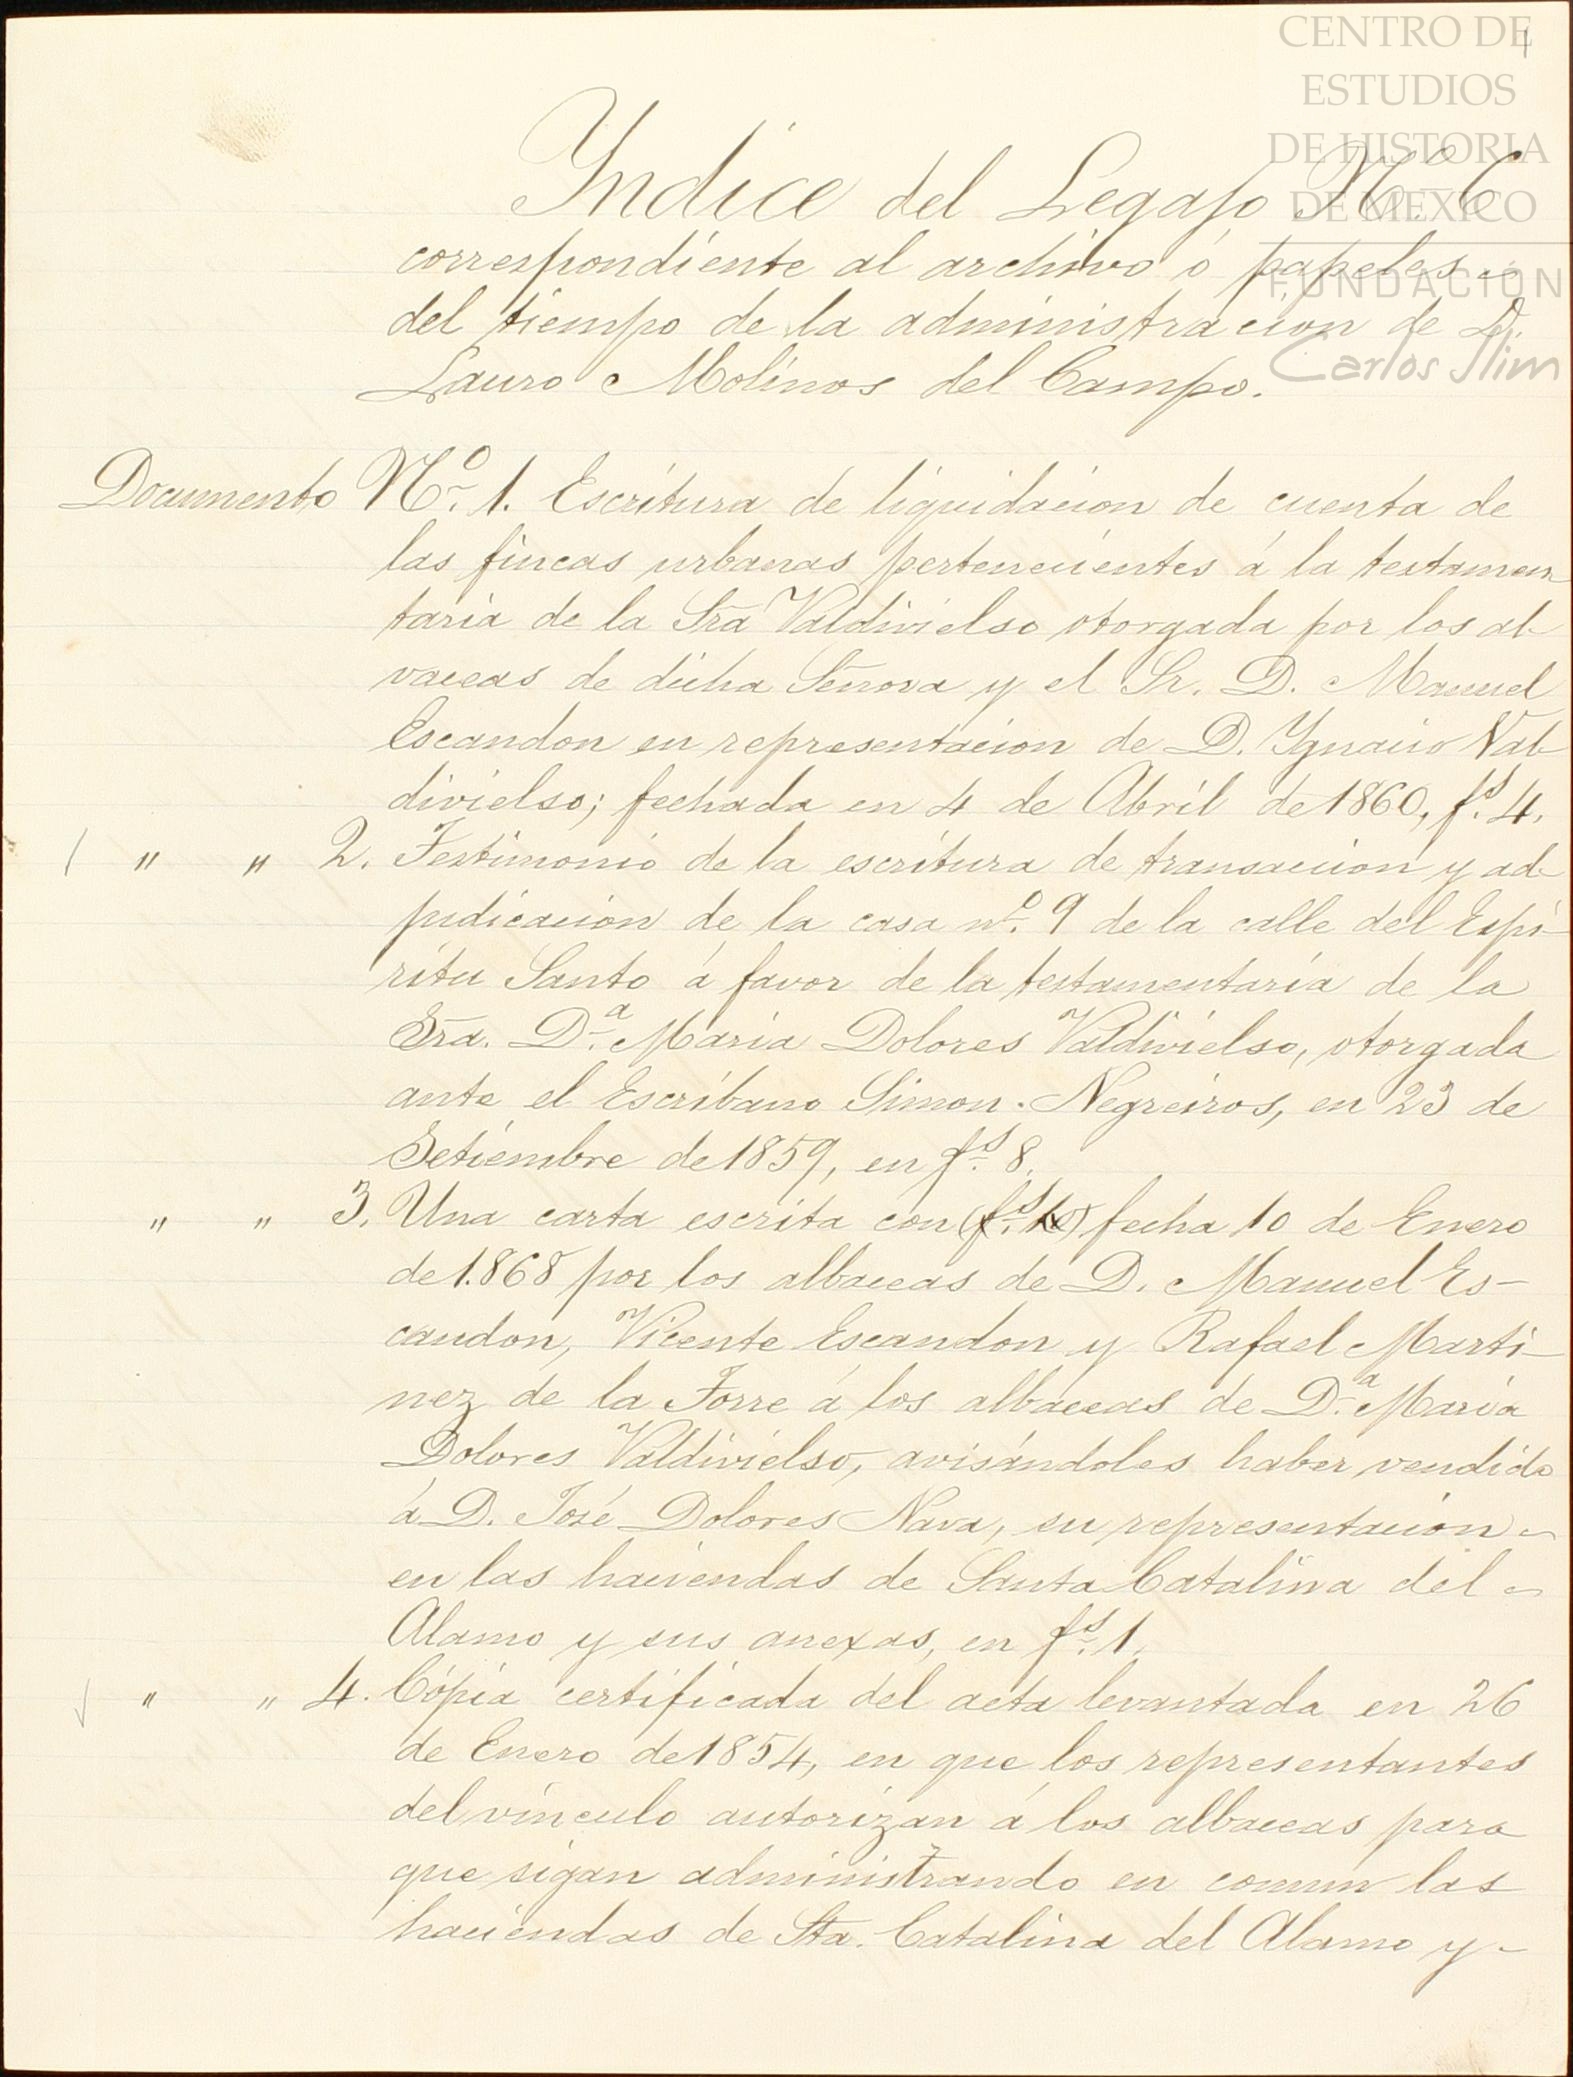 CENTRO DE
ESTUDIOS
DE HISTORIA
DE MEXICO
FUNDACIÓN
Carlos Slim
1
Yndice del Legajo Nº. 6
correspondiente al archivo ó papeles
del tiempo de la administracion de D.
Lauro Molinos del Campo.
Documento Nº. 1. Escritura de liquidacion de cuenta de
las fincas urbanas pertenecientes á la testamen
taria de la Sra Valdivielso otorgada por los al-
vaceas de dicha Señora y el Sr. D. Manuel
Escandon en representacion de D. Ygnacio Val-
divielso; fechada en 4 de Abril de 1860, fs. 4.
" " 2. Testimonio de la escritura de transaccion y ad-
judicacion de la casa nº. 9 de la calle del Espi-
ritu Santo á favor de la testamentaría de la
Sra. Dª. Maria Dolores Valdivielso, otorgada
ante el Escribano Simon Negreiros, en 23 de
Setiembre de 1859, en fs. 8.
" " 3. Una carta escrita con (fs. 10) fecha 10 de Enero
de 1.868 por los albaceas de D. Manuel Es-
candon, Vicente Escandon y Rafael Marti-
nez de la Torre á los albaceas de Dª. María
Dolores Valdivielso, avisándoles haber vendido
á D. José Dolores Nava, su representacion
en las haciendas de Santa Catalina del
Alamo y sus anexas, en fs. 1.
" " 4. Cópia certificada del acta levantada en 26
de Enero de 1854, en que los representantes
del vínculo autorizan á los albaceas para
que sigan administrando en comun las
haciendas de Sta. Catalina del Alamo y-